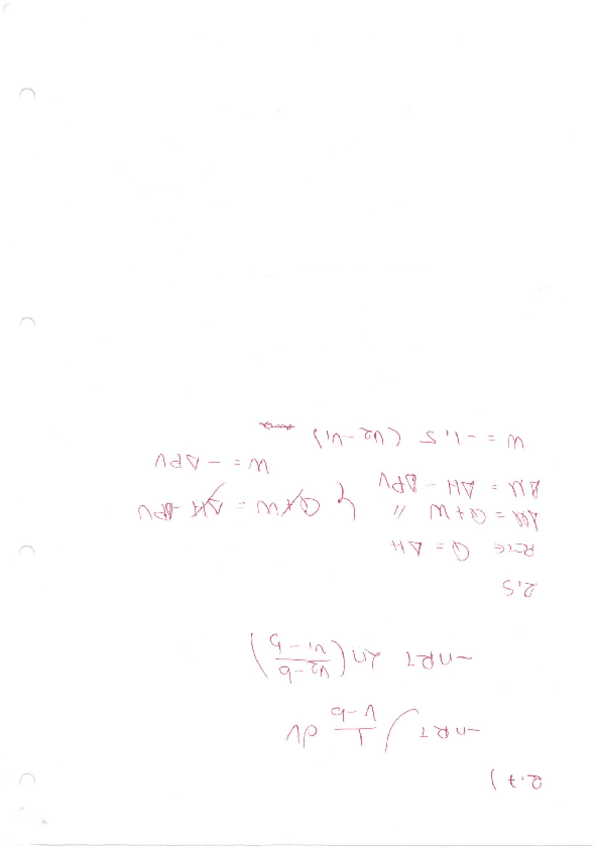 2.7)
-nRT ∫ 1/(V-b) dV
-nRT ln( (V2-b)/(V1-b) )
2,5
Q = ΔH
= Q+W " } Q+W = ΔH - ΔPV
ΔU = ΔH - ΔPV
W = - ΔPV
W = -1,5 (V2-V1)